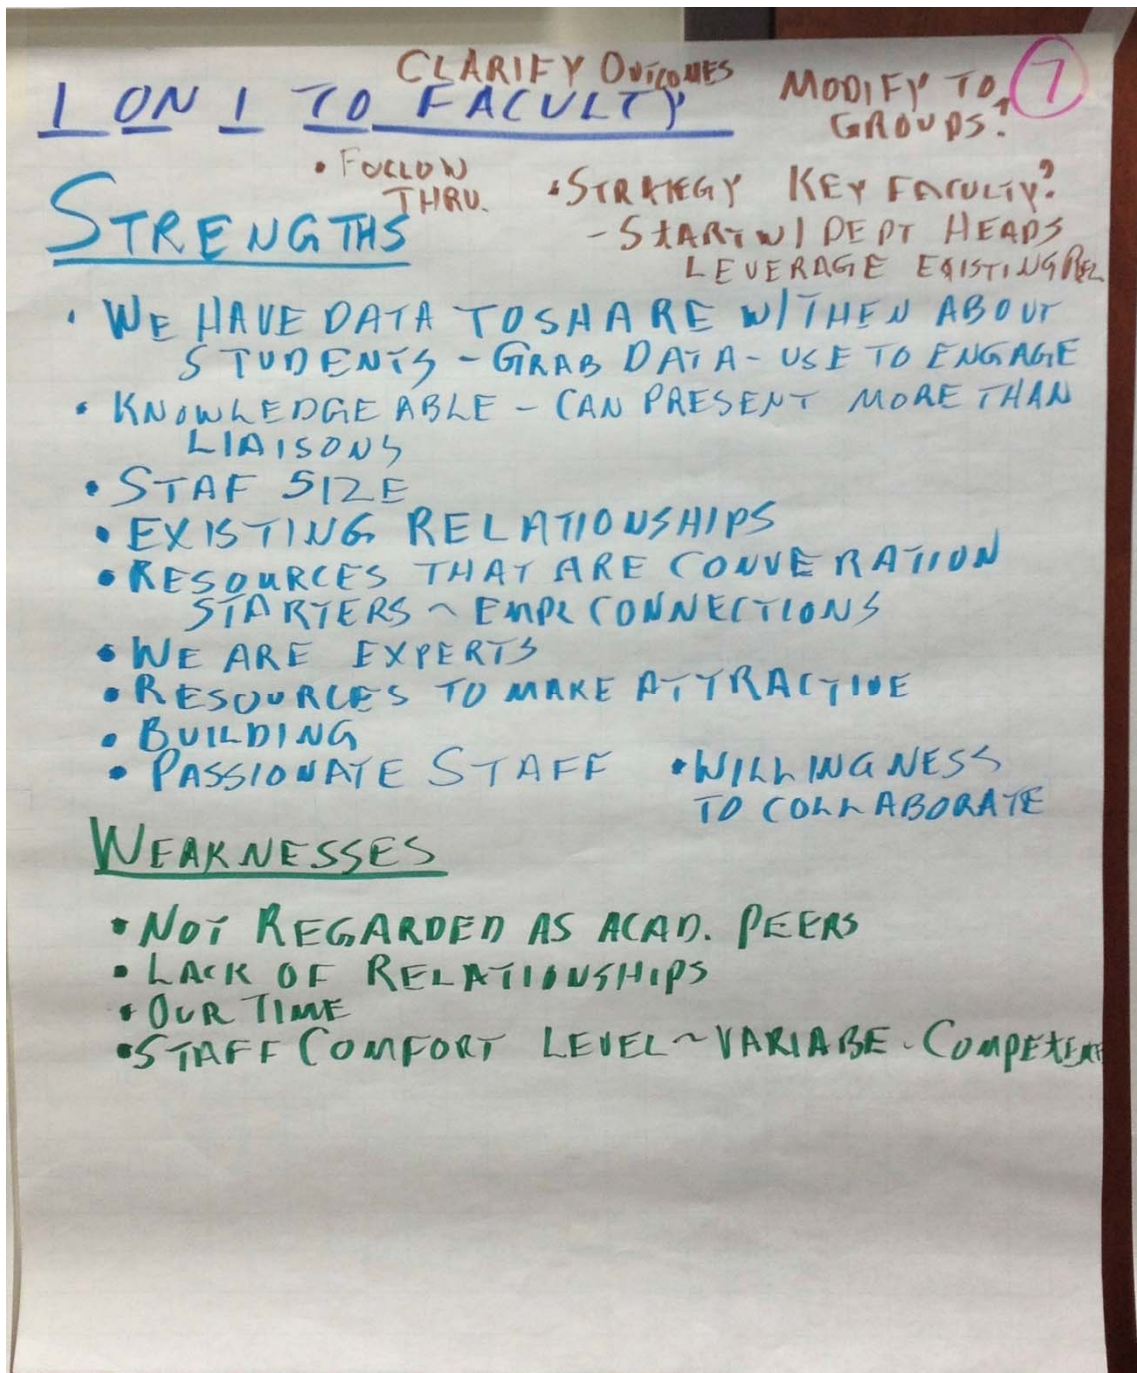 CLARIFY OUTCOMES
1 ON 1 TO FACULTY
MODIFY TO
GROUPS?
7
• FOLLOW
THRU.
• STRATEGY KEY FACULTY?
- START W/ DEPT HEADS
LEVERAGE EXISTING REL
STRENGTHS
• WE HAVE DATA TO SHARE W/ THEN ABOUT
STUDENTS - GRAB DATA - USE TO ENGAGE
• KNOWLEDGEABLE - CAN PRESENT MORE THAN
LIAISONS
• STAF SIZE
• EXISTING RELATIONSHIPS
• RESOURCES THAT ARE CONVERATION
STARTERS ~ EMPL CONNECTIONS
• WE ARE EXPERTS
• RESOURCES TO MAKE ATTRACTIVE
• BUILDING
• PASSIONATE STAFF • WILLINGNESS
TO COLLABORATE
WEAKNESSES
• NOT REGARDED AS ACAD. PEERS
• LACK OF RELATIONSHIPS
• OUR TIME
• STAFF COMFORT LEVEL ~ VARIABE -